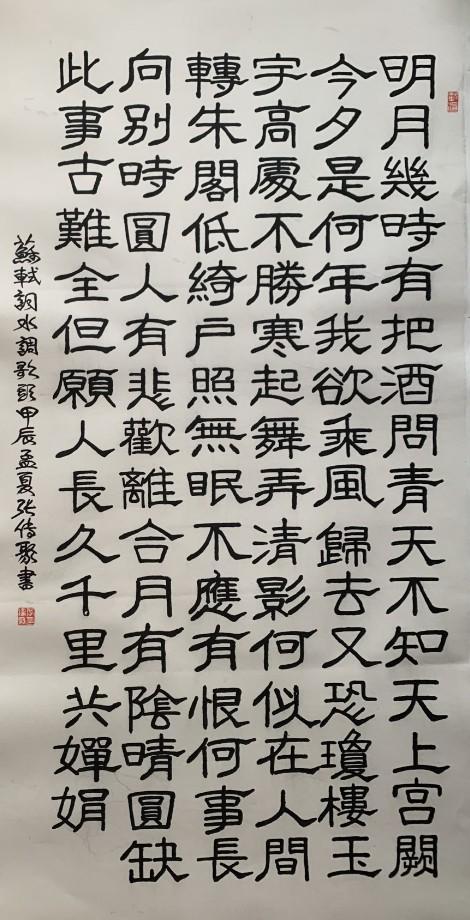 明月幾時有把酒問青天不知天上宫闕
今夕是何年我欲乘風歸去又恐瓊樓玉
宇高處不勝寒起舞弄清影何似在人間
轉朱閣低綺戶照無眠不應有恨何事長
向別時圓人有悲歡離合月有陰晴圓缺
此事古難全但願人長久千里共嬋娟
蘇軾詞水調歌頭甲辰孟夏张传聚書